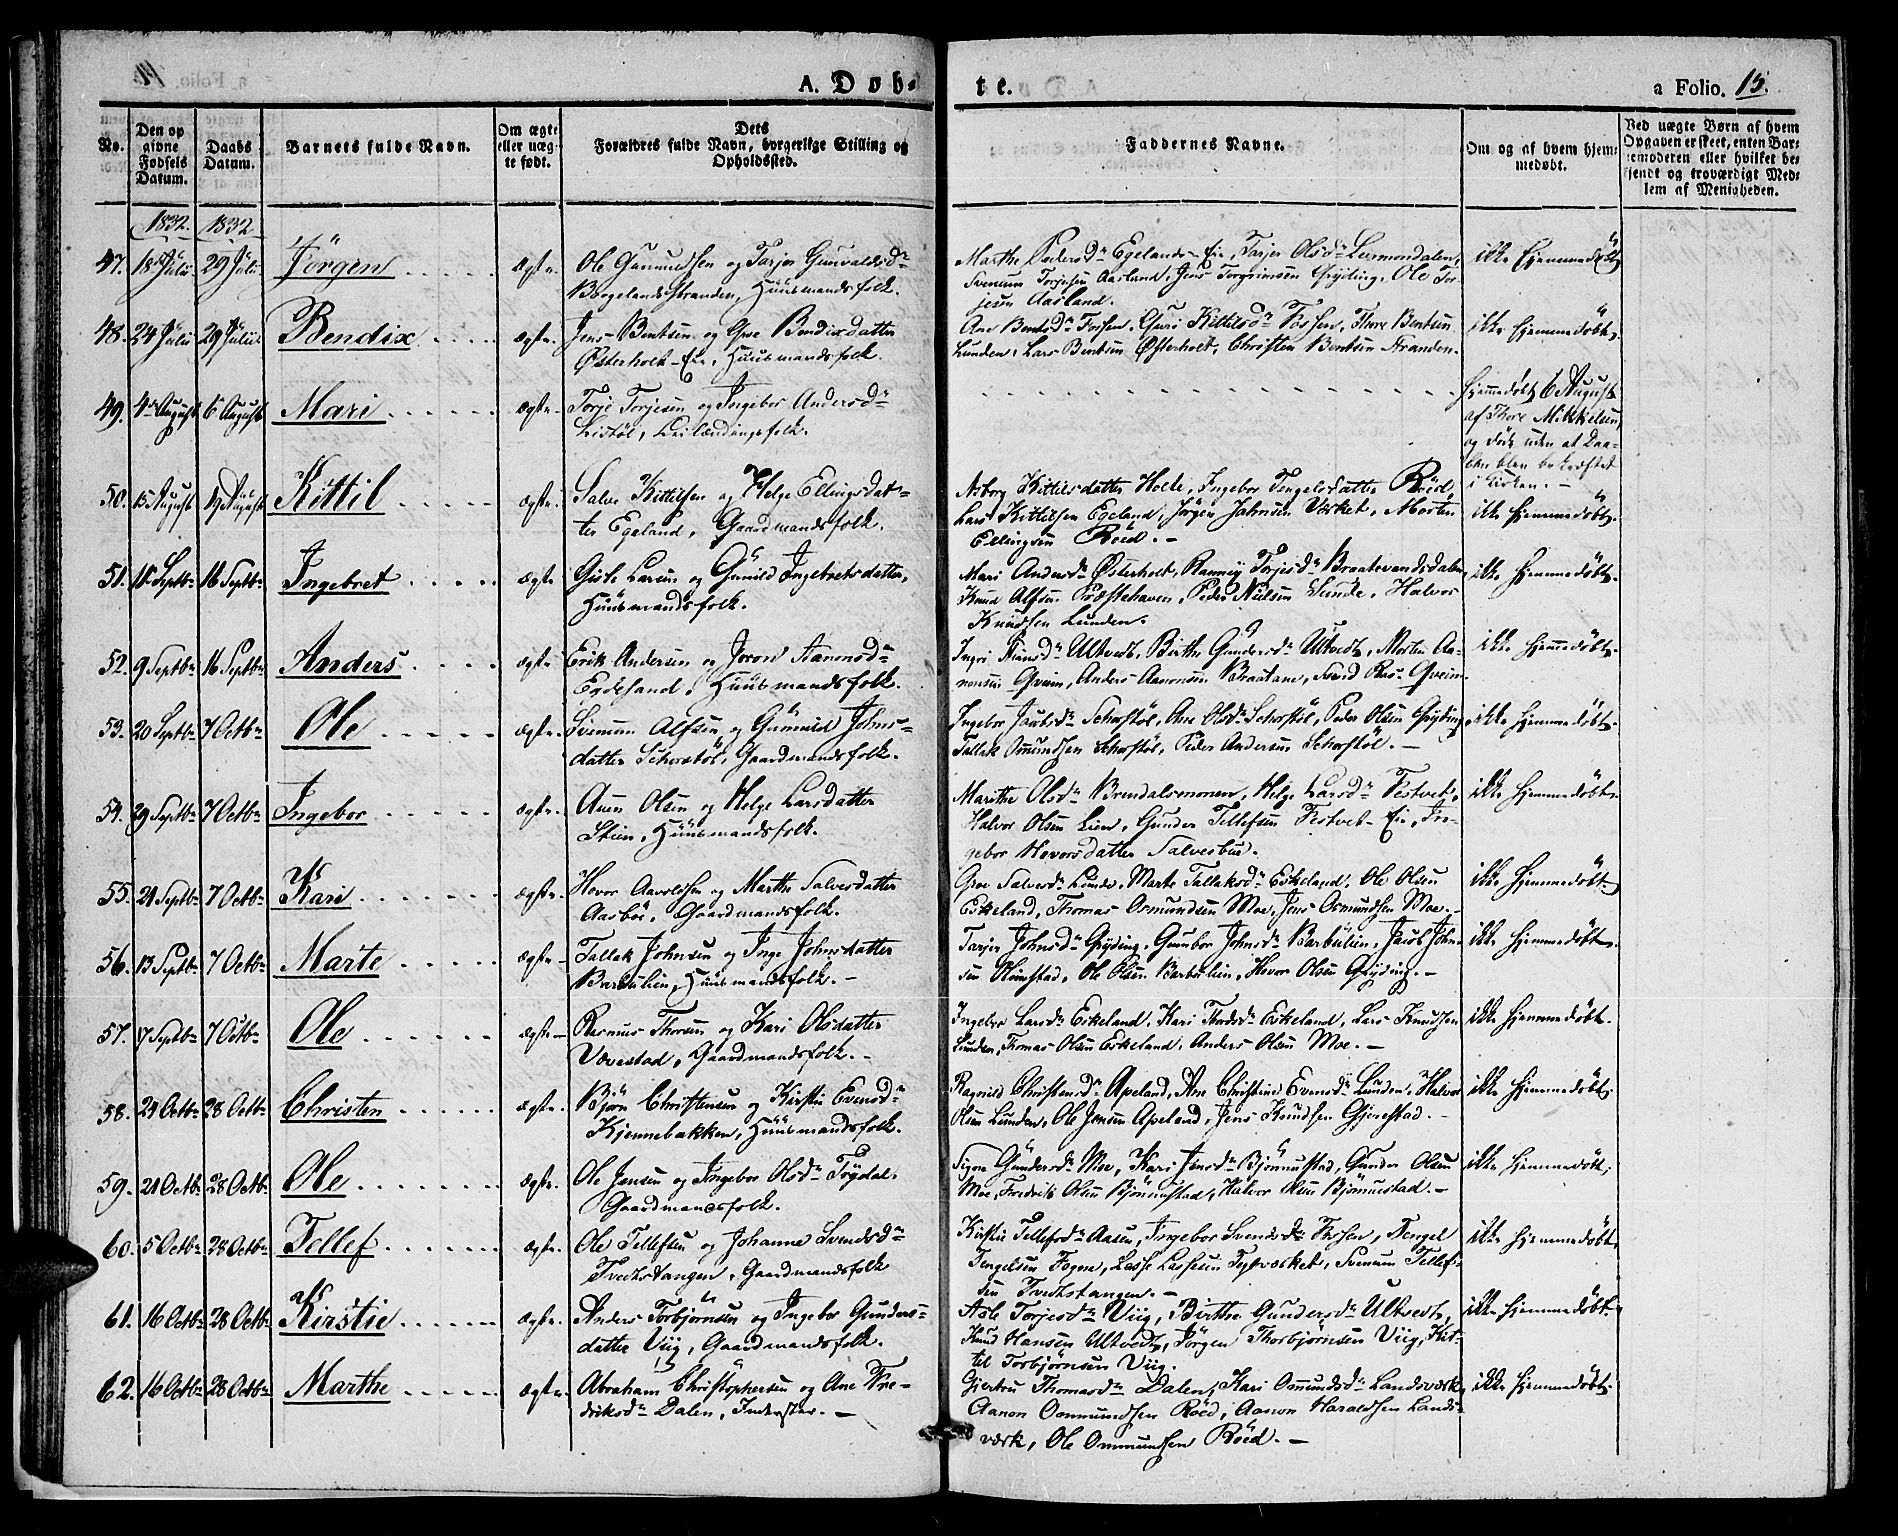 A. Døb-
te.
a Folio. 15.
No.
Den op
givne
Fødsels
Datum.
Daabs
Datum.
Barnets fulde Navn.
Om ægte
eller uæg
te født.
Dets
Forældres fulde Navn, borgerlige Stilling og
Opholdssted.
Faddernes Navne.
Om og af hvem hjem-
medøbt.
Ved uægte Børn af hvem
Opgaven er skeet, enten Bar-
nemoderen eller hvilket be-
kjendt og troværdigt Med-
lem af Menigheden.
1832. 1832
47. 18de Julii 29 Julii Jörgen ægte. Ole Gunmundsen og Tarjer Gunvaldsdr
Borgelandsstranden, Huusmandsfolk.
Marthe Pedersdr Egelands-Eie, Tarjer Olsdr Lermondalen,
Svenum Torjesen Aasland, Jens Torgrimsen Gryting, Ole Tor-
jesen Aasland.
ikke hjemmedöbt
48. 24 Julii 29 Julii Bendix ægte. Jens Bentsen og Groe Bendixdatter
Østerholt-Eie, Huusmandsfolk.
Ane Bentsdr Fossen, Guro Kittilsdr Fossen, Thore Bentsen
Lunden, Lars Bentsen Østerholt, Christen Bentsen Stranden.
ikke hjemmedöbt
49. 4de August 6 August Mari ægte. Torje Torjesen og Ingebor Andersdr
Listöl, Leilændingsfolk.
Hjemmedöbt 6 August
af Thore Mikkelsen,
og döde uden at Daa-
ben blev bekræftet
i Kirken.
50. 15 August 19 August Kittil ægte. Salve Kittilsen og Helge Ellingsdat-
ter Egeland, Gaardmandsfolk.
Asborg Kittilsdatter Holte, Ingebor Tengelsdatter Röed,
Lars Kittilsen Egeland, Jörgen Johnsen Værket, Morten
Ellingsen Röed.
ikke hjemmedöbt
51. 11 Septbr 16 Septbr Ingebret ægte. Gisle Larsen og Gunild Ingebretsdatter,
Huusmandsfolk.
Mari Andersdr Østerholt, Ranney Torjesdr Braatevandsdalen,
Knud Alfsen Præstehaven, Peder Nielsen Sunde, Halvor
Knudsen Lunden.
ikke hjemmedöbt
52. 9 Septbr 16 Septbr Anders ægte. Erik Andersen og Joron Aanonsdr
Egdeland, Huusmandsfolk.
Ingri Hansdr Ultvedt, Birthe Gundersdr Ultvedt, Morten Aa-
nonsen Qveim, Anders Aanonsen Brautane,
ikke hjemmedöbt
53. 20 Septbr 7 Octbr Ole ægte. Svenum Alfsen og Gunnild Johns-
datter Schorstöl, Gaardmandsfolk.
Ingebor Jacobsdr Schorstöl, Ane Olsdr Schorstöl, Peder Olsen Gryting,
Tallak Omundsen Schorstöl, Peder Andersen Schorstöl.
ikke hjemmedöbt
54. 29 Septbr 7 Octbr Ingebor ægte. Auen Olsen og Helge Larsdatter
Steen, Huusmandsfolk.
Marthe Olsdr Brendalsmonen, Helge Larsdr Festvet,
Halvor Olsen Lien, Gunder Tellefsen Festvet-Eie, In-
gebor Hovorsdatter Salvesbue.
ikke hjemmedöbt
55. 21 Septbr 7 Octbr Kari ægte. Hovor Aavoldsen og Marthe Salvesdatter
Aasböe, Gaardmandsfolk.
Groe Salvesdr Lunde, Marte Tallaksdr Eskeland, Ole Olsen
Eskeland, Thomas Osmundsen Moe, Jens Osmundsen Moe.
ikke hjemmedöbt
56. 13 Septbr 7 Octbr Marte ægte. Tallak Johnsen og Inge Johnsdatter
Barbulien, Huusmandsfolk.
Tarjer Johnsdr Gryting, Gunbor Johnsdr Barbulien, Jacob John-
sen Olimstad, Ole Olsen Barbulien, Hovor Olsen Gryting.
ikke hjemmedöbt
57. 17 Septbr 7 Octbr Ole ægte. Rasmus Thorsen og Kari Olsdatter
Vævestad, Gaardmandsfolk.
Ingebor Larsdr Eskeland, Kari Thordsdr Eskeland, Lars Knudsen
Lunden, Thomas Olsen Eskeland, Anders Olsen Moe.
ikke hjemmedöbt
58. 24 Octbr 28 Octbr Christen ægte. Björn Christensen og Kirstie Evensdr
Kjennebakken, Huusmandsfolk.
Ragnild Christensdr Apeland, Ane Christine Evensdr Lunden, Halvor
Olsen Lunden, Ole Jensen Apeland, Jens Knudsen Gjerestad.
ikke hjemmedöbt
59. 21 Octbr 28 Octbr Ole ægte. Ole Jensen og Ingebor Olsdr
Gaardmandsfolk.
Signe Gundersdr Moe, Kari Jensdr Bjönnustad, Gunder Olsen
Moe, Fredrik Olsen Bjönnustad, Halvor Olsen Bjönnustad.
ikke hjemmedöbt
60. 5 Octbr 28 Octbr Tellef ægte. Ole Tellefsen og Johanne Svendsdr
Tvedtstangen, Gaardmandsfolk
Kirstie Tellefsdr Aasen, Ingebor Svendsdr Fossen, Tengel
Tengelsen Fogne, Lasse Lassesen Værket, Svenum Tellef-
sen Tvedtstangen.
ikke hjemmedöbt
61. 16 Octbr 28 Octbr Kirstie ægte. Anders Torbjörnsen og Ingebor Gunders-
datter Viig, Gaardmandsfolk.
Asle Torjesdr Viig, Birthe Gundersdr Ultvedt,
Knud Hansen Ultvedt, Jörgen Thorbjörnsen Viig, Kit-
til Torbjörnsen Viig.
ikke hjemmedöbt
62. 16 Octbr 28 Octbr Marthe ægte. Abraham Christophersen og Ane Fre-
driksdr Dalen, Inderster.
Gjertru Thomasdr Dalen, Kari Omundsdr Landsværk,
Aanon Ommundsen Röed, Aanon Haraldsen Lands-
værk, Ole Ommundsen Röed.
ikke hjemmedöbt